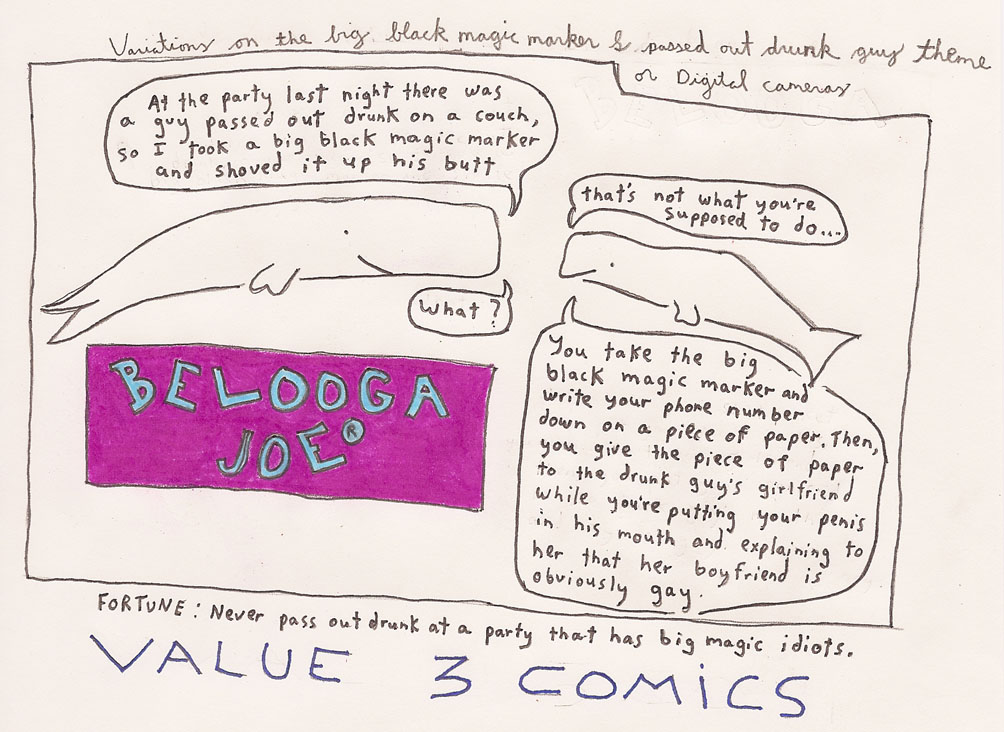 Variations on the big black magic marker & passed out drunk guy theme
or Digital cameras
At the party last night there was
a guy passed out drunk on a couch,
so I took a big black magic marker
and shoved it up his butt
that's not what you're
supposed to do...
What?
You take the big
black magic marker and
write your phone number
down on a piece of paper. Then,
you give the piece of paper
to the drunk guy's girlfriend
while you're putting your penis
in his mouth and explaining to
her that her boyfriend is
obviously gay.
BELOOGA
JOE®
FORTUNE: Never pass out drunk at a party that has big magic idiots.
VALUE 3 COMiCS